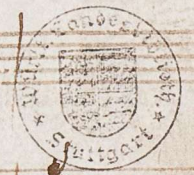 Württ. Landesbiblioth.
Stuttgart